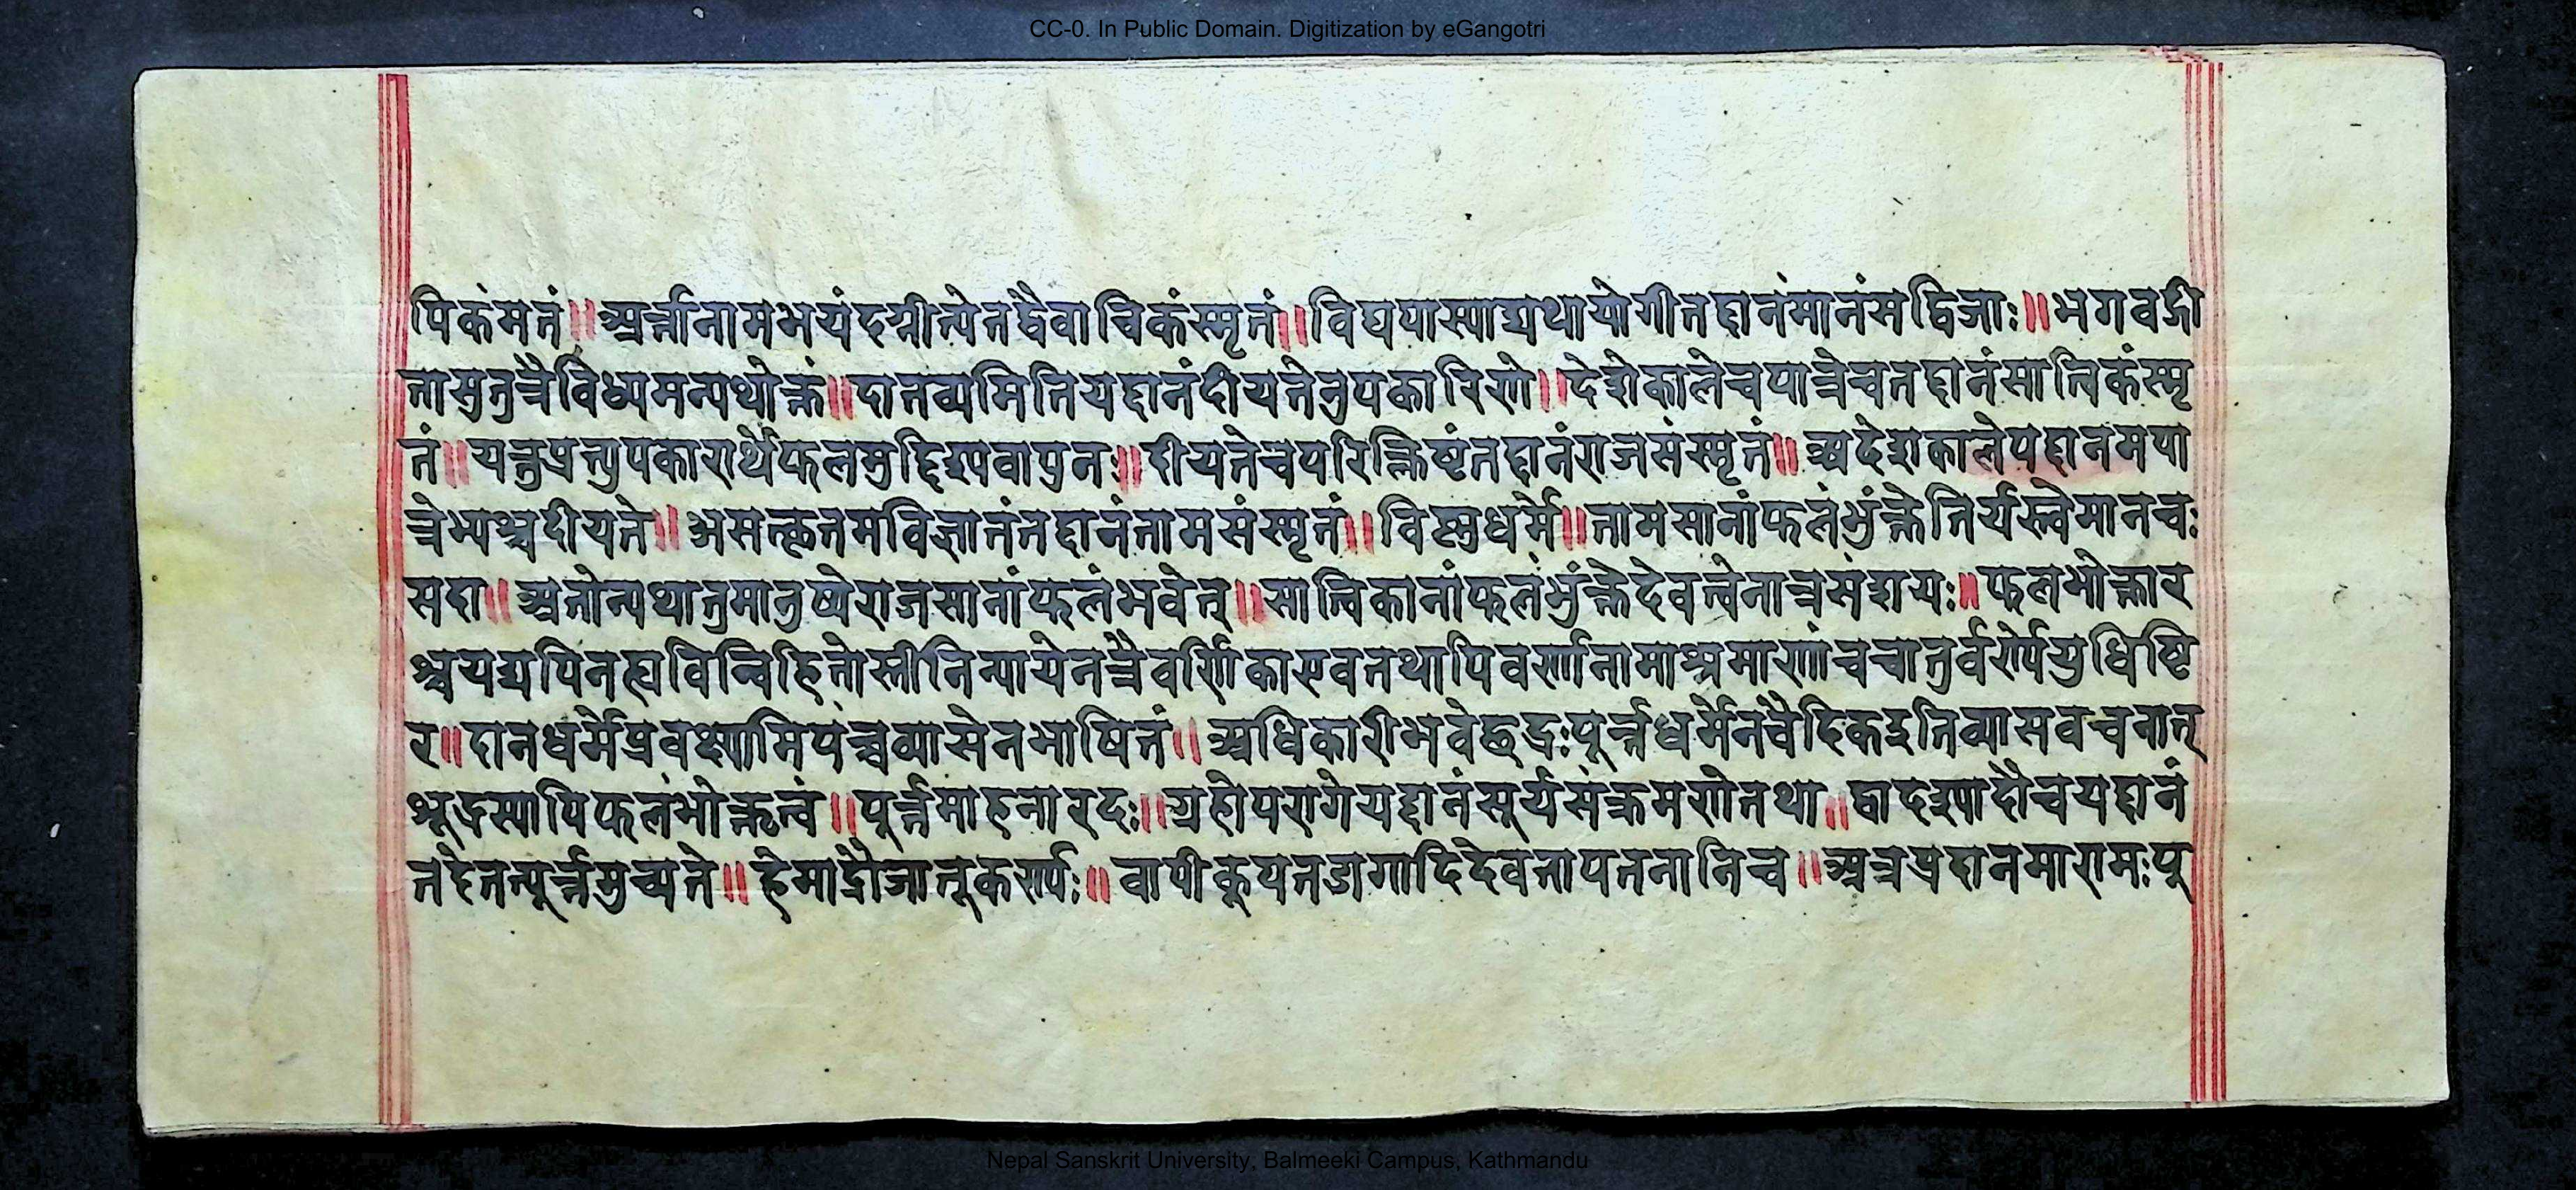 CC-0. In Public Domain. Digitization by eGangotri
पिकंमतं॥ अर्त्तानामभयंदद्मीत्येतद्वैवाचिकंस्मृतं॥ विद्ययास्याद्यथायोगीतद्दानंमानंसद्विजाः॥ भगवद्गी
तासुतुत्रैविध्यमन्यथोक्तं॥ दातव्यमितियद्दानंदीयतेनुपकारिणे॥ देशेकालेचपात्रेचतद्दानंसात्विकंस्मृ
तं॥ यत्तुप्रत्युपकारार्थेफलमुद्दिश्यवापुनः॥ दीयतेचपरिक्लिष्टंतद्दानंराजसंस्मृतं॥ अदेशकालेयद्दानमपा
त्रेभ्यश्चदीयते॥ असत्कृतमविज्ञातंतद्दानंतामसंस्मृतं॥ विष्णुधर्मे॥ तामसानांफलंभुंक्तेतिर्यक्त्वेमानवः
सदा॥ अतोन्यथातुमानुष्येराजसानांफलंभवेत्॥ सात्विकानांफलंभुंक्तेदेवत्वेनात्रसंशयः॥ फलभोक्तार
श्चयद्यपिनह्यविन्विहितोस्तीतिन्यायेनत्रैवर्णिकाएवतथापिवर्णानामाश्रमाणांचचातुर्वर्ण्येयुधिष्ठि
र॥ दानधर्मेप्रवक्ष्यामियंच्चव्यासेनभाषितं॥ अधिकारीभवेच्छूद्रःपूर्त्तेधर्मेनवैदिकइतिव्यासवचनात्
शूद्रस्यापिफलंभोक्तृत्वं॥ पूर्त्तमाहनारदः॥ ग्रहोपरागेयद्दानंसूर्यसंक्रमणेतथा॥ द्वादश्यादौचयद्दानं
तदेतत्पूर्त्तमुच्यते॥ हेमाद्रौजातूकर्ण्यः॥ वापीकूपतडागादिदेवतायतनानिच॥ अन्नप्रदानमारामःपू
Nepal Sanskrit University, Balmeeki Campus, Kathmandu